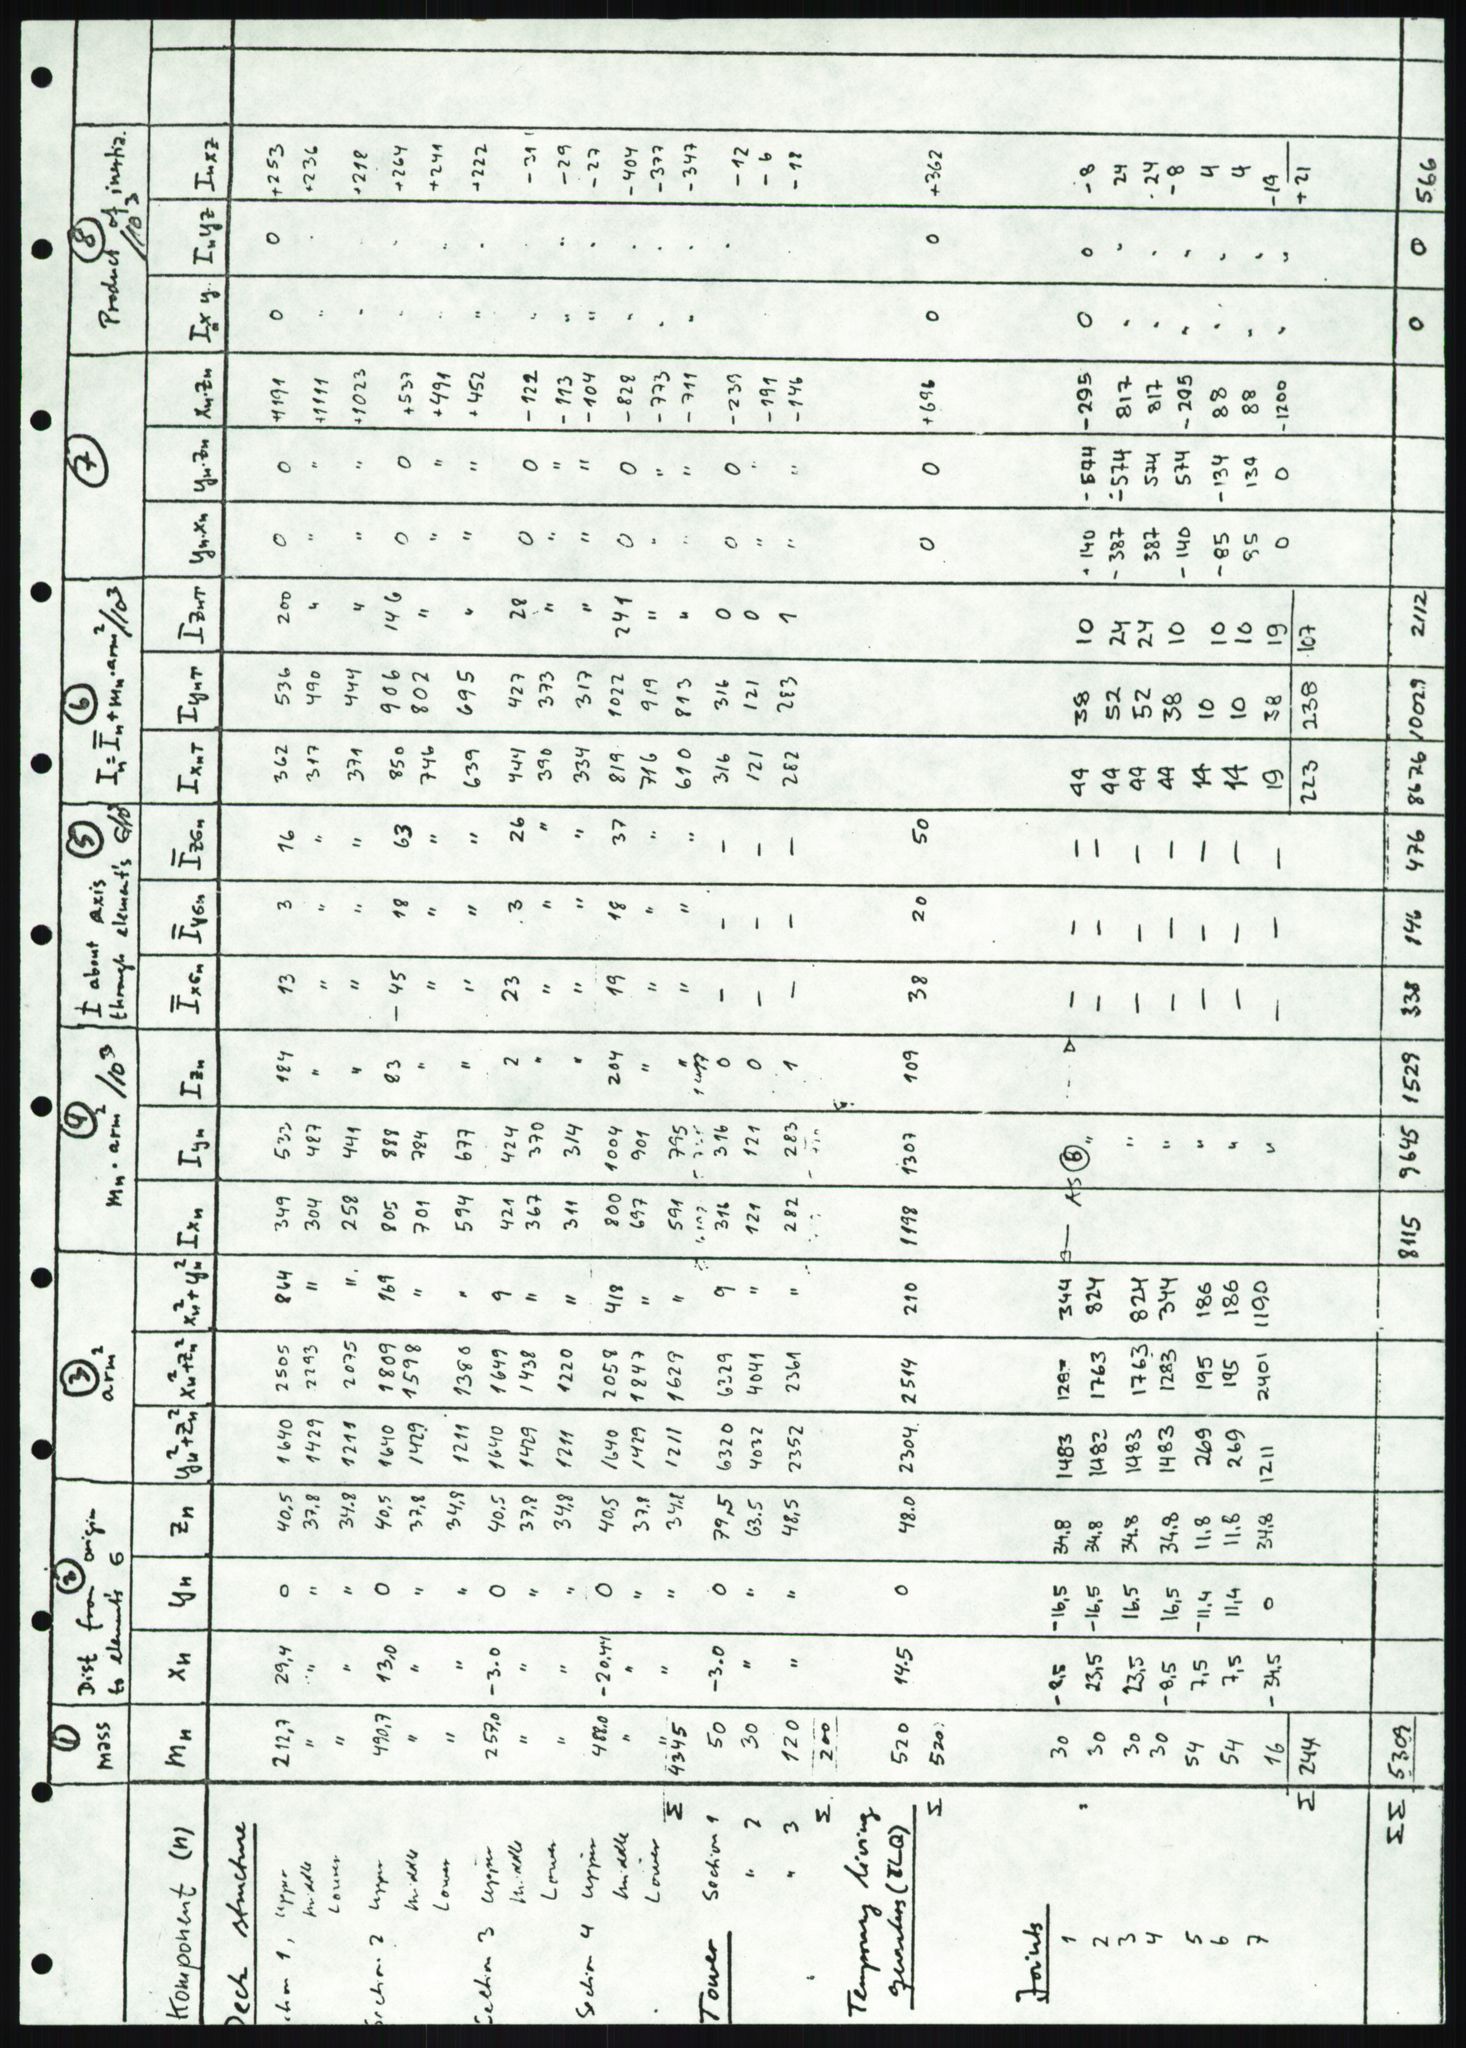 ① ② ③ ④ ⑤ ⑥ ⑦ ⑧
mass | Dist from origin to elements G | arm² | Mn · arm² /10³ | I about axis through element's G/10³ | In = Īn + mn · arm²/10³ | Product of inertia /10³
Komponent (n) | Mn | Xn | Yn | Zn | Yn²+Zn² | Xn²+Zn² | Xn²+Yn² | Ixn | Iyn | Izn | ĪxGn | ĪyGn | ĪzGn | IxnT | IynT | IznT | Yn·Xn | Yn·Zn | Xn·Zn | Inxy | Inyz | Inxz
Deck structure
ction 1, upper 212,7 29,4 0 40,5 1640 2505 864 349 533 184 13 3 16 362 536 200 0 0 +1191 0 0 +253
Middle " " " 37,8 1429 2293 " 304 487 " " " " 317 490 " " " +1111 " " +236
Lower " " " 34.8 1211 2075 " 258 441 " " " " 371 444 " " " +1023 " " +218
Section 2 upper 490,7 13,0 0 40,5 1640 1809 169 805 888 83 45 18 63 850 906 146 0 0 +537 " " +264
Middle " " " 37,8 1429 1598 " 701 784 " " " " 746 802 " " " +491 " " +241
Lower " " " 34,8 1211 1380 " 594 677 " " " " 639 695 " " " +452 " " +222
Section 3 upper 257,0 -3.0 0 40,5 1640 1649 9 421 424 2 23 3 26 444 427 28 0 0 -122 " " -31
Middle " " " 37,8 1429 1438 " 367 370 " " " " 390 373 " " " -113 " " -29
Lower " " " 34,8 1211 1220 " 311 314 " " " " 334 317 " " " -104 " " -27
Section 4 upper 488.0 -20,44 0 40,5 1640 2058 418 800 1004 204 19 18 37 819 1022 241 0 0 -828 " " -404
Middle " " " 37,8 1429 1847 " 697 901 " " " " 716 919 " " " -773 " " -377
Lower " " " 34,8 1211 1629 " 591 795 " " " " 610 813 " " " -711 " " -347
Σ 4345
Tower Section 1 50 -3.0 0 79,5 6320 6329 9 316 316 0 – – – 316 316 0 0 0 -239 " -12
" 2 30 " " 63.5 4032 4041 " 121 121 0 – – – 121 121 0 " " -191 -6
" 3 120 " " 48,5 2352 2361 " 282 283 1 – – – 282 283 1 " " -146 -18
Σ 200
Temporary living quarters (TLQ) 520 14.5 0 48.0 2304. 2514 210 1198 1307 109 38 20 50 0 0 +696 0 0 +362
Σ 520
Joints
1 30 -8,5 -16,5 34.8 1483 344 AS ⑥ – – – 44 38 10 +140 -574 -295 0 0 -8
2 30 23,5 -16,5 34,8 1482 1763 824 " – – – 44 52 24 -387 -574 817 " " 24
3 30 23,5 16.5 34.8 1483 1763 824 " – – – 44 52 24 387 574 817 " " 24
4 30 -8,5 16,5 34.8 1483 1283 344 " – – – 44 38 10 -140 574 -295 " " -8
5 54 7,5 -11,4 11.8 269 195 186 " – – – 14 10 10 -85 -134 88 " " 4
6 54 7,5 11,4 11.8 269 195 186 " – – – 14 10 10 85 134 88 " " 4
7 16 -34,5 0 34,8 1211 2401 1190 " – – – 19 38 19 0 0 -1200 " " -19
Σ 244 223 238 107 +21
ΣΣ 5309 8115 9645 1529 338 146 476 8676 10029 2112 0 0 566